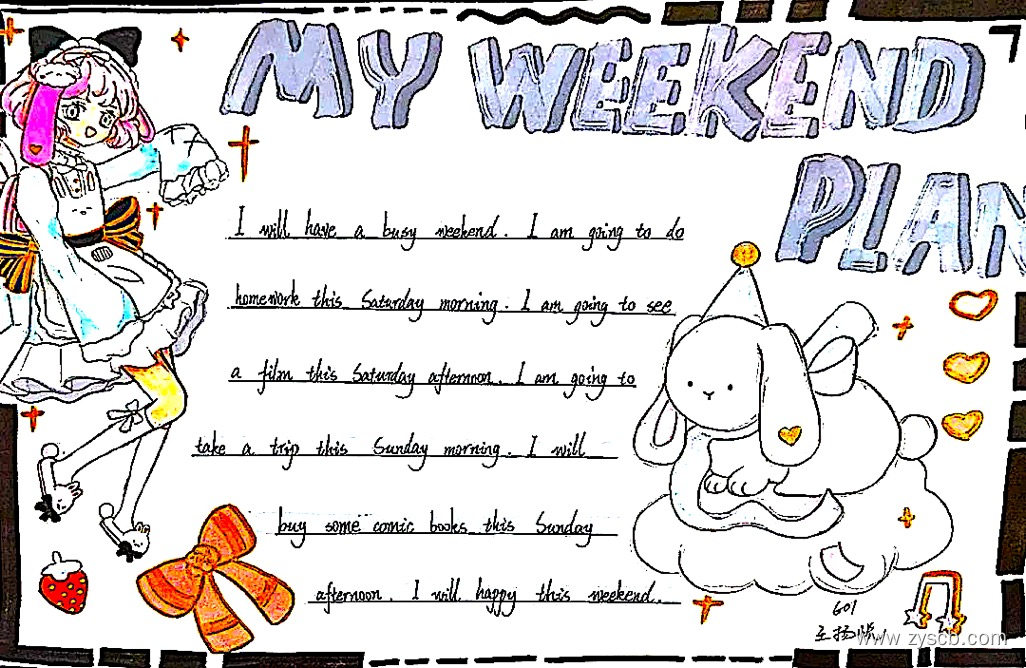 MY WEEKEND
PLAN
I will have a busy weekend. I am going to do
homework this Saturday morning. I am going to see
a film this Saturday afternoon. I am going to
take a trip this Sunday morning. I will
buy some comic books this Sunday
afternoon. I will happy this weekend.
601
www.zyscb.com